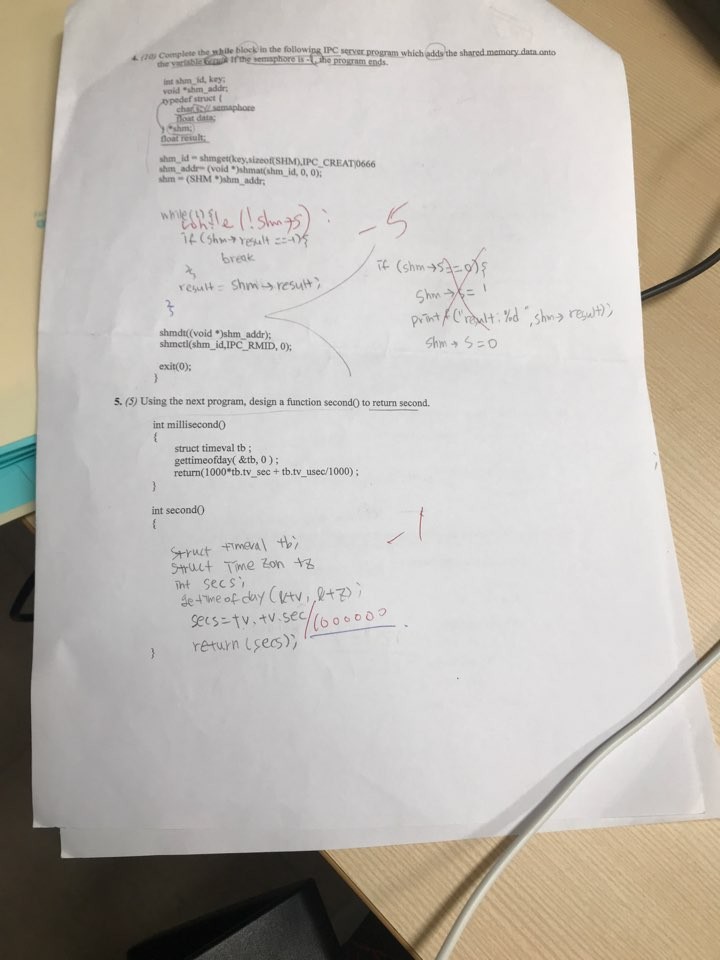 4. (10) Complete the while block in the following IPC server program which adds the shared memory data onto
the variable result. If the semaphore is -1, the program ends.
int shm_id, key;
void *shm_addr;
typedef struct {
char s; // semaphore
float data;
} *shm;
float result;
shm_id = shmget(key,sizeof(SHM),IPC_CREAT|0666
shm_addr= (void *)shmat(shm_id, 0, 0);
shm = (SHM *)shm_addr;
while(1) {
while (!shm→s) ;
-5
if (shm→result ==-1){
break
}
result = shm→result;
}
if (shm→s==0){
shm→s= 1
printf("result:%d", shm→result);
shm→s=0
shmdt((void *)shm_addr);
shmctl(shm_id,IPC_RMID, 0);
exit(0);
}
5. (5) Using the next program, design a function second() to return second.
int millisecond()
{
struct timeval tb ;
gettimeofday( &tb, 0 ) ;
return(1000*tb.tv_sec + tb.tv_usec/1000) ;
}
int second()
{
-1
struct timeval tb;
struct Time Zon tz
int secs;
gettimeofday(&tv, &tz);
secs=tv.tv.sec/1000000
return (secs);
}